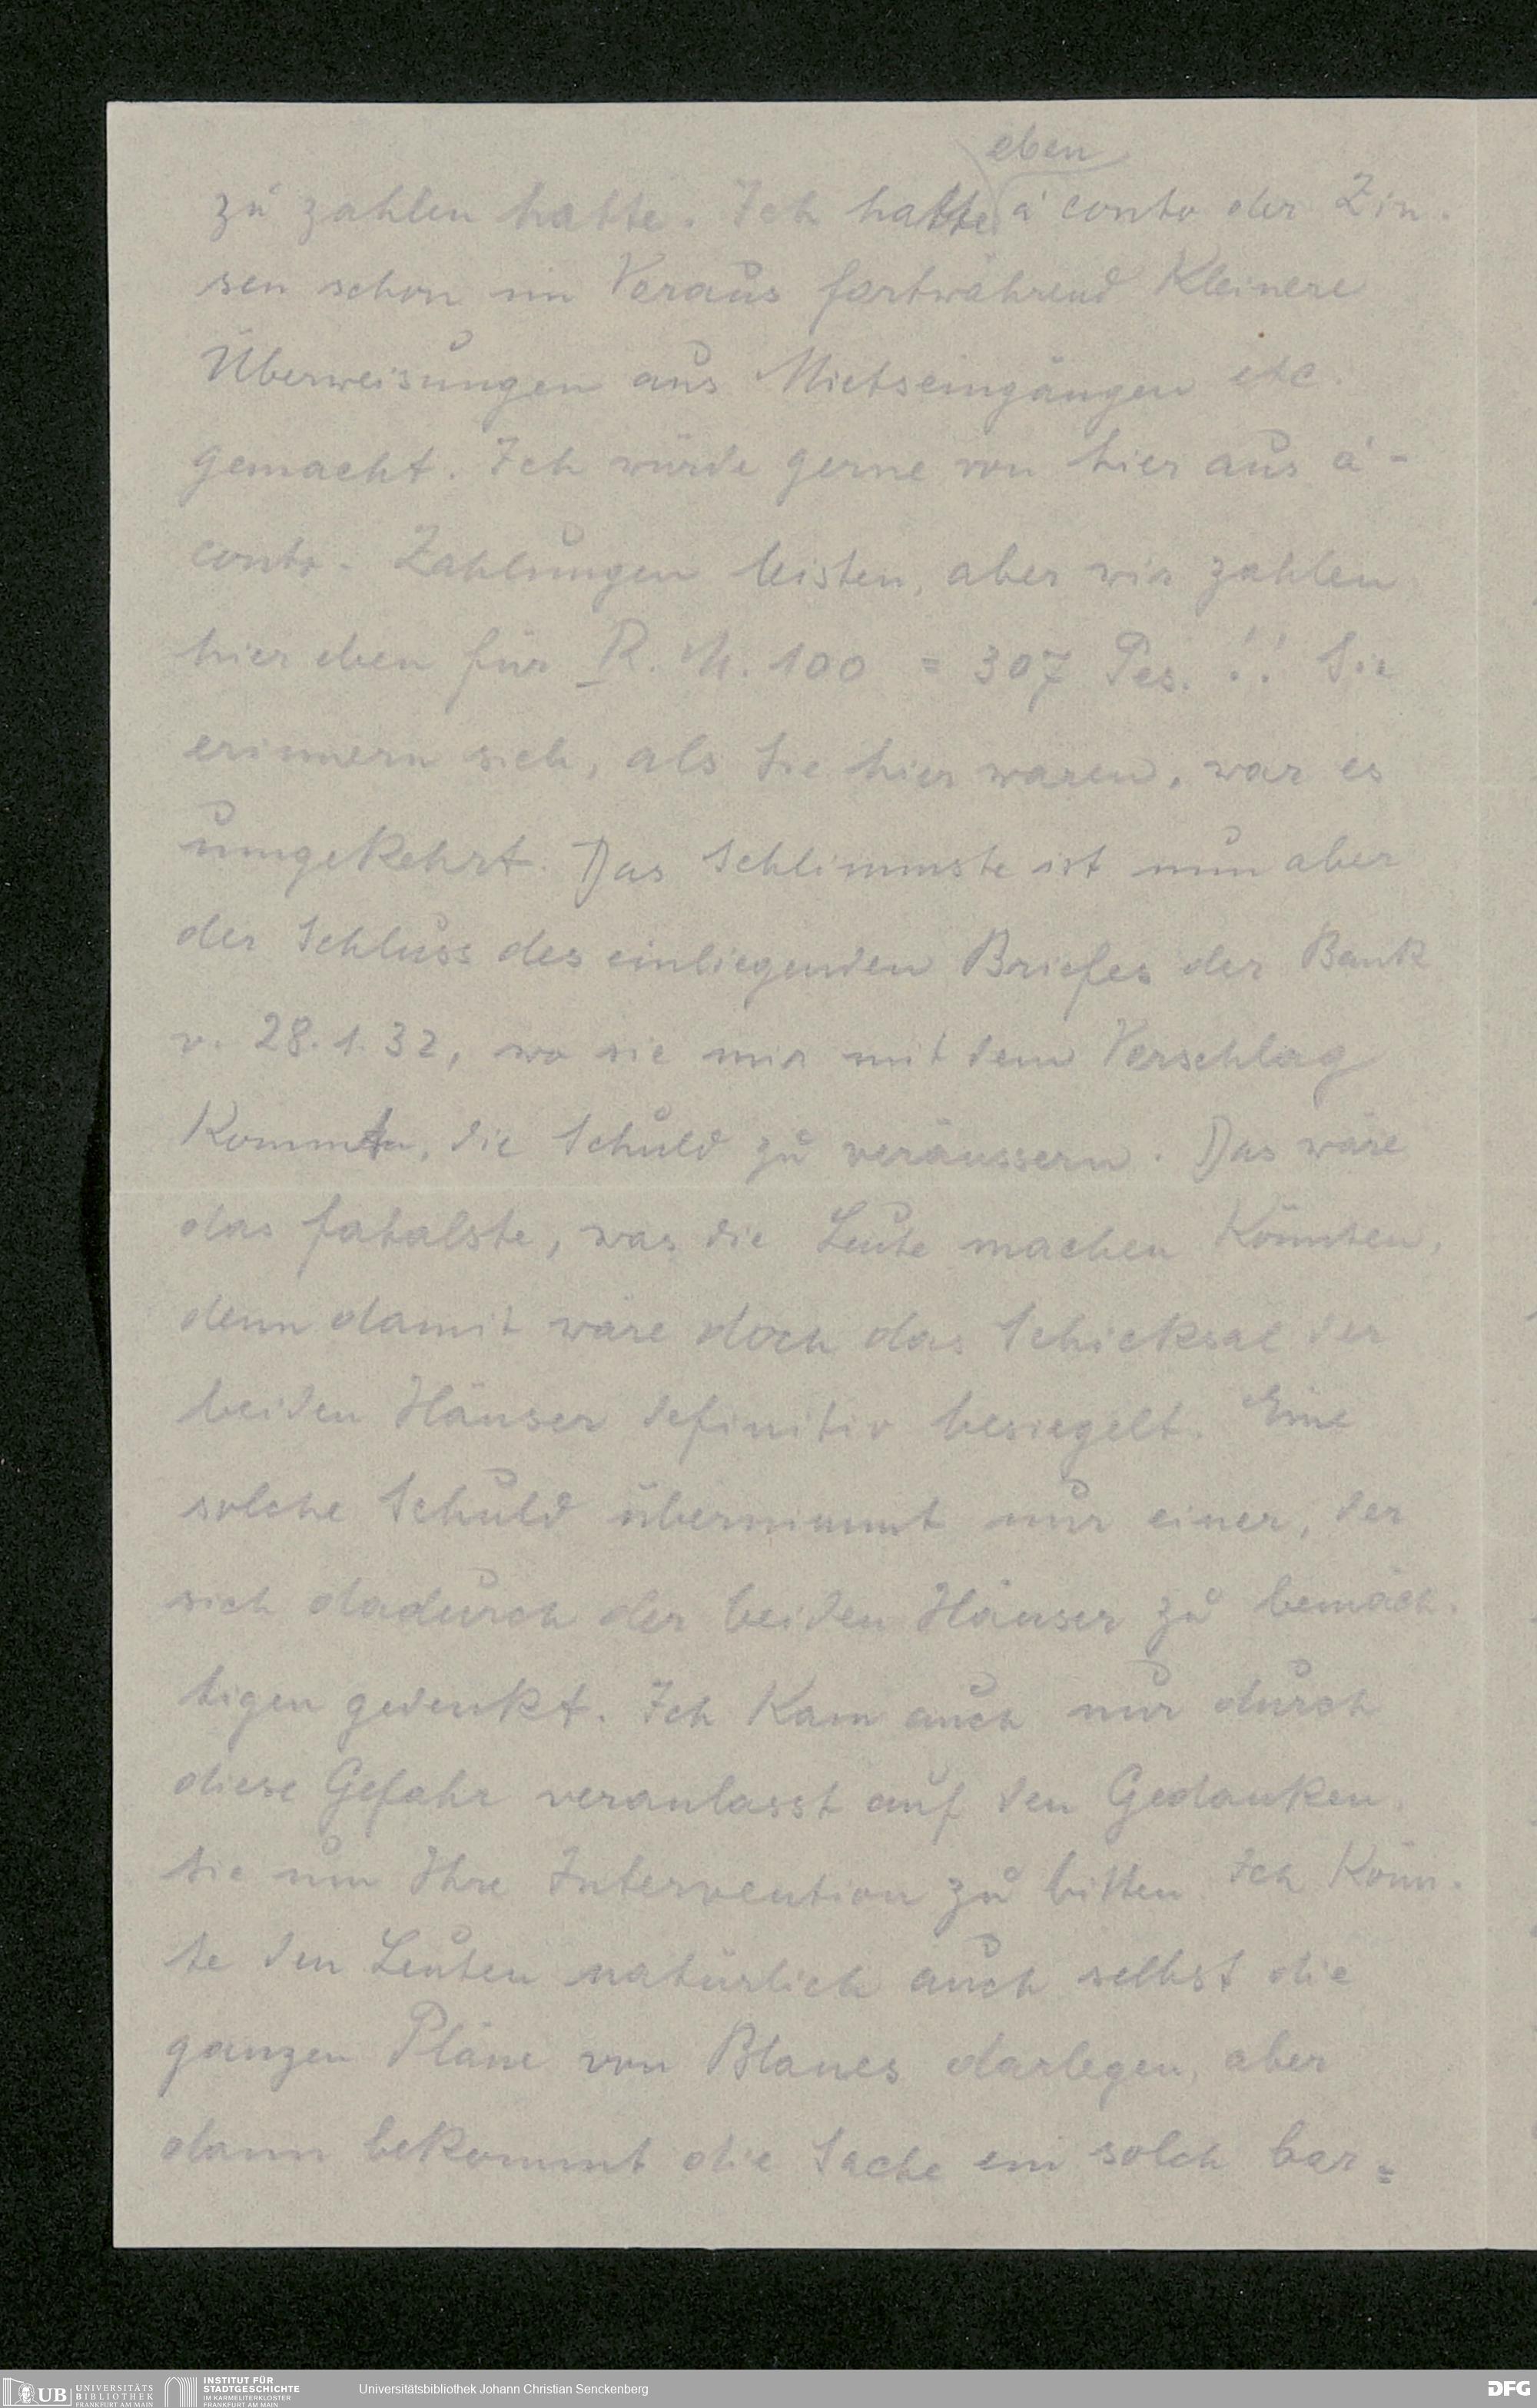 eben
zu zahlen hatte. Ich hatte à conto der Zin-
sen schon im Voraus fortwährend kleinere
Überweisungen aus Mietseingängen etc.
gemacht. Ich würde gerne von hier aus à-
conto-Zahlungen leisten, aber wir zahlen
hier eben für R.M. 100 = 307 Pes.!! Sie
erinnern sich, als Sie hier waren, war es
umgekehrt. Das Schlimmste ist nun aber
der Schluss des einliegenden Briefes der Bank
v. 28.1.32, wo sie mir mit dem Vorschlag
kommt, die Schuld zu veräussern. Das wäre
das fatalste, was die Leute machen könnten,
denn damit wäre doch das Schicksal der
beiden Häuser definitiv besiegelt. Eine
solche Schuld übernimmt nur einer, der
sich dadurch der beiden Häuser zu bemäch-
tigen gedenkt. Ich kam auch nur durch
diese Gefahr veranlasst auf den Gedanken,
Sie um Ihre Intervention zu bitten. Ich könn-
te den Leuten natürlich auch selbst die
ganzen Pläne von Blanes darlegen, aber
dann bekommt die Sache ein solch bar=
UB UNIVERSITÄTS BIBLIOTHEK FRANKFURT AM MAIN
INSTITUT FÜR STADTGESCHICHTE IM KARMELITERKLOSTER FRANKFURT AM MAIN
Universitätsbibliothek Johann Christian Senckenberg
DFG